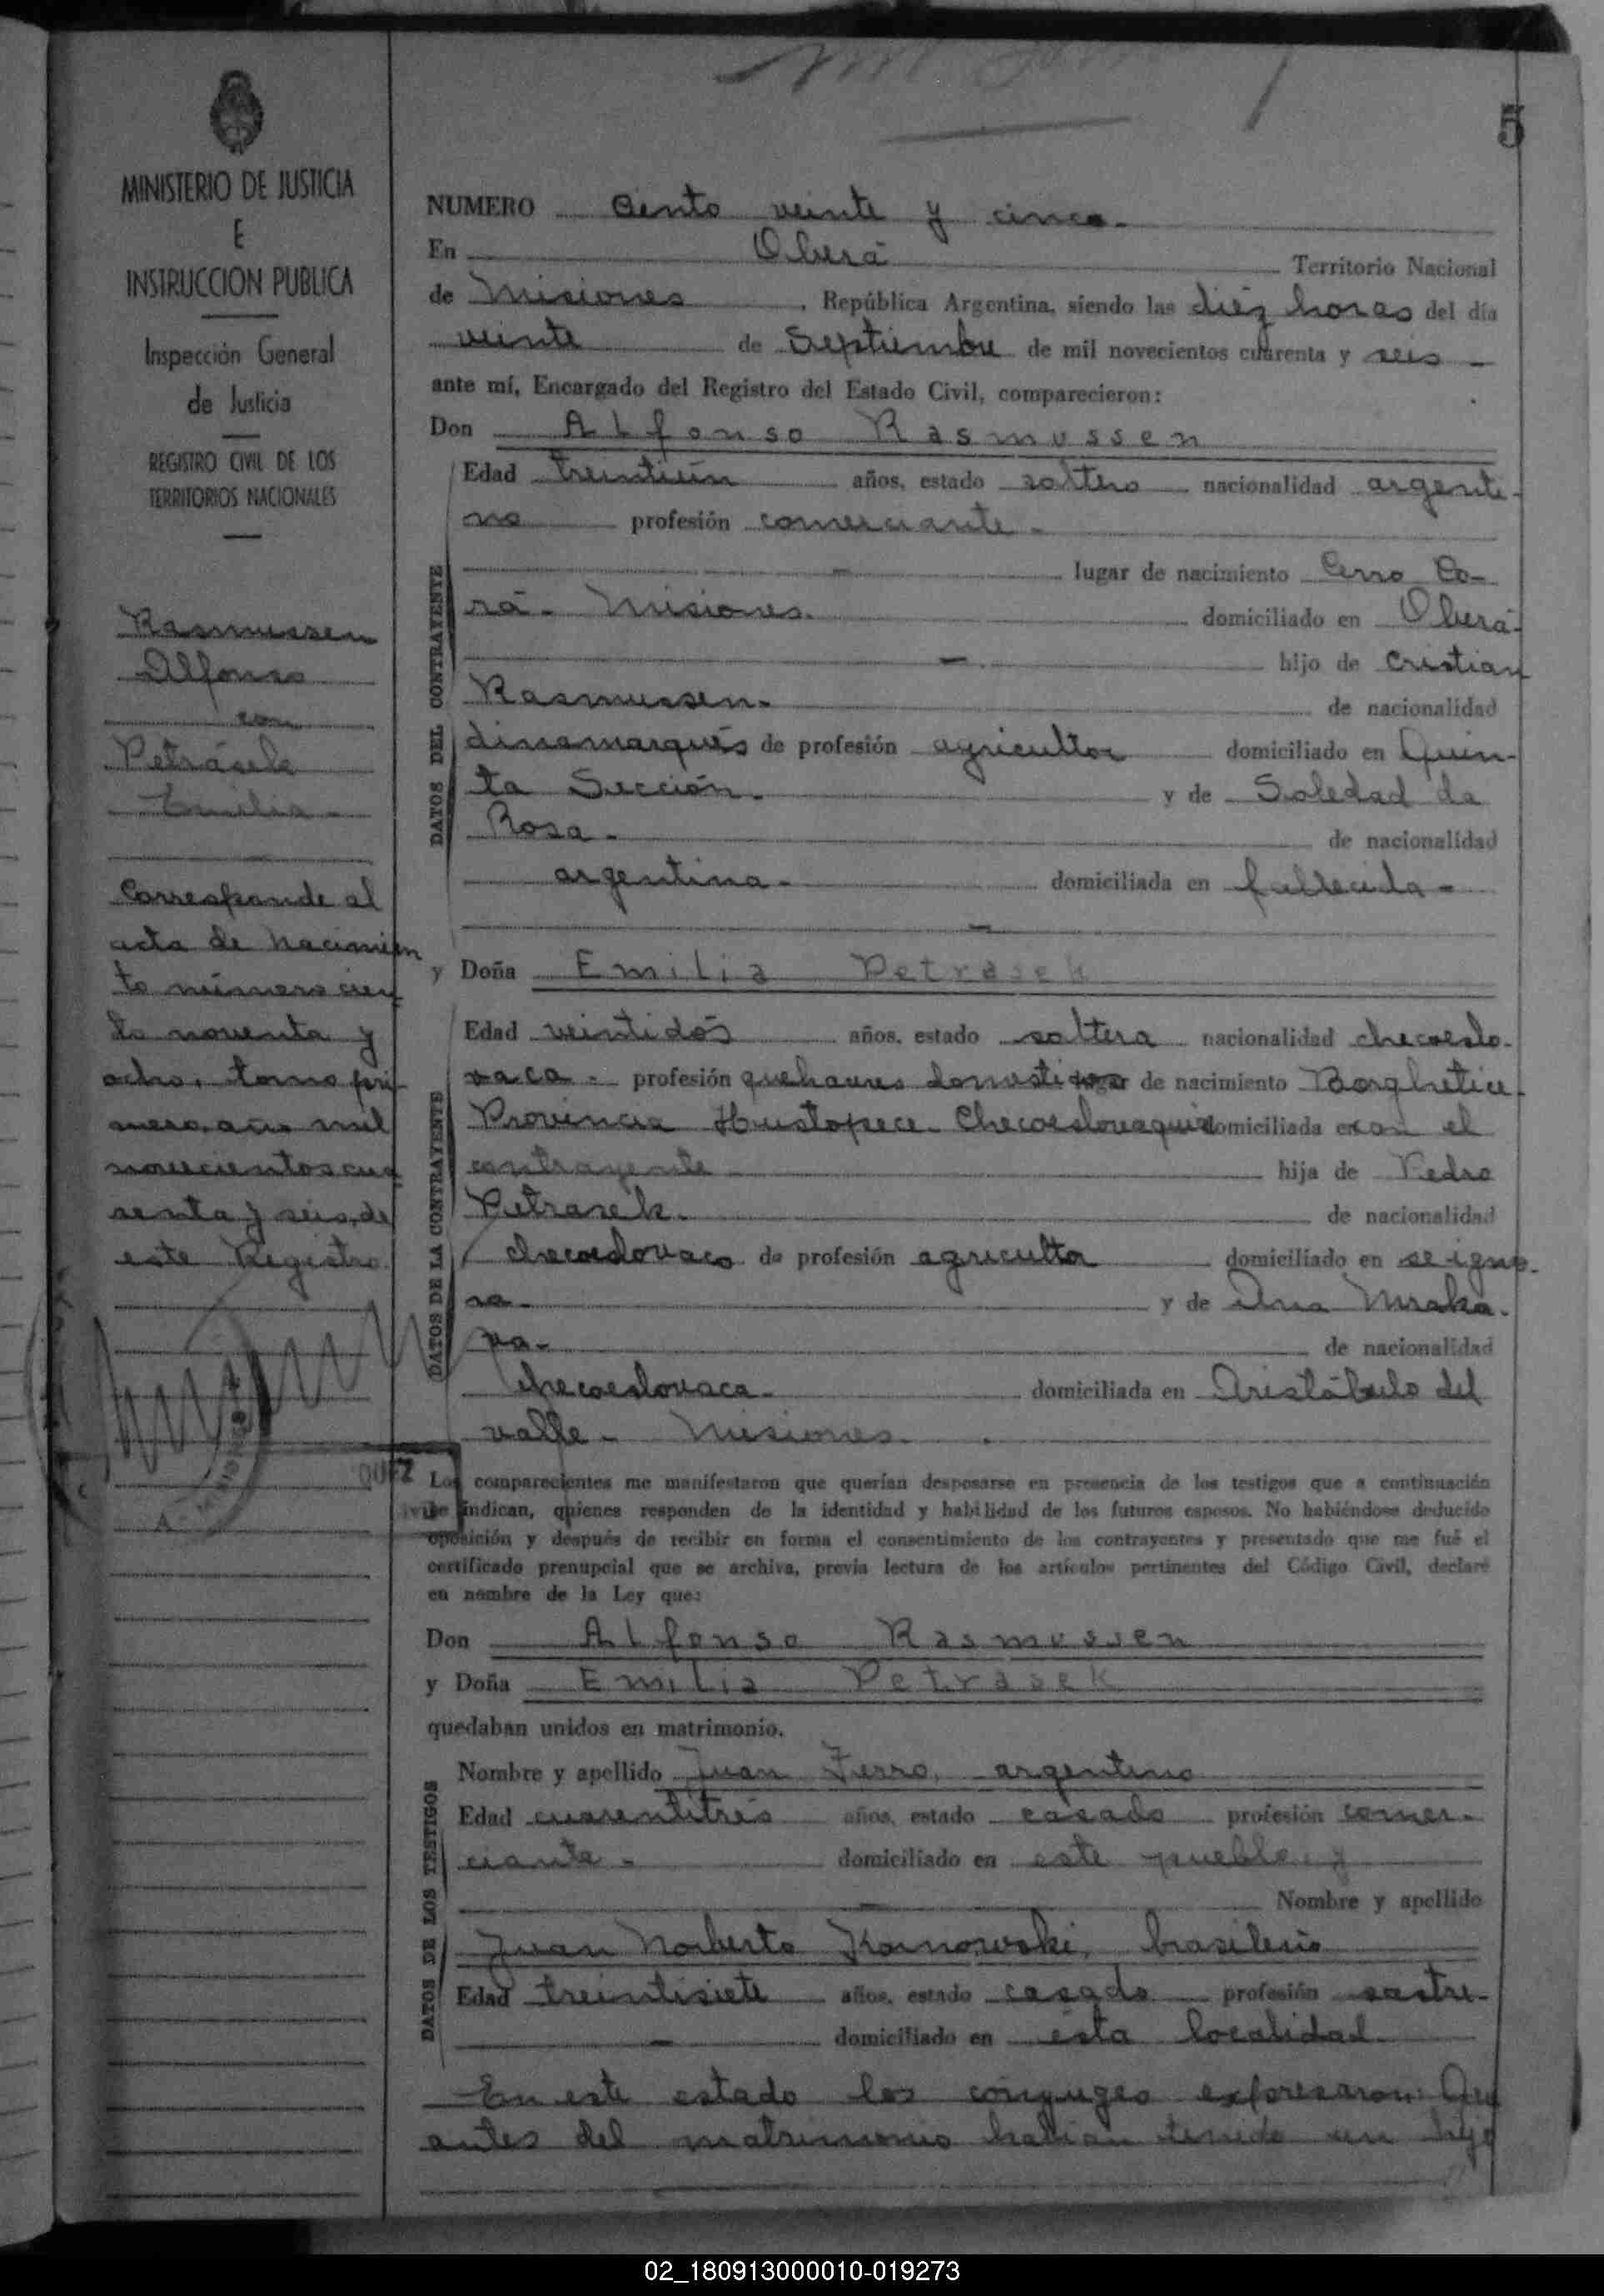 5
MINISTERIO DE JUSTICIA
E
INSTRUCCION PUBLICA
Inspección General
de Justicia
REGISTRO CIVIL DE LOS
TERRITORIOS NACIONALES
Rasmussen
Alfonso
con
Petrásek
Emilia -
Corresponde al
acta de nacimien
to número cien
to noventa y
ocho, tomo pri
mero, año mil
novecientos cua
renta y seis, de
este Registro.
NUMERO ciento veinte y cinco.
En Oberá Territorio Nacional
de Misiones, República Argentina, siendo las diéz horas del día
veinte de Septiembre de mil novecientos cuarenta y seis -
ante mí, Encargado del Registro del Estado Civil, comparecieron:
Don Alfonso Rasmussen
DATOS DEL CONTRAYENTE
Edad treintiún años, estado soltero nacionalidad argenti-
no profesión comerciante -
- lugar de nacimiento Cerro Co-
rá - Misiones. domiciliado en Oberá -
- hijo de Cristian
Rasmussen - de nacionalidad
dinamarqués de profesión agricultor domiciliado en Quin-
ta Sección. y de Soledad da
Rosa - de nacionalidad
argentina - domiciliada en fallecida -
-
y Doña Emilia Petrasek
DATOS DE LA CONTRAYENTE
Edad veintidós años, estado soltera nacionalidad checoeslo-
vaca - profesión quehaceres domesticos lugar de nacimiento Borghetice -
Provincia Hustopece - Checoeslovaquia domiciliada en con el
contrayente hija de Pedro
Petrasek. de nacionalidad
checoeslovaco de profesión agricultor domiciliado en se igno-
ra - y de Ana Mraka-
va - de nacionalidad
checoeslovaca - domiciliada en Aristóbulo del
valle - Misiones.
Los comparecientes me manifestaron que querían desposarse en presencia de los testigos que a continuación
se indican, quienes responden de la identidad y habilidad de los futuros esposos. No habiéndose deducido
oposición y después de recibir en forma el consentimiento de los contrayentes y presentado que me fué el
certificado prenupcial que se archiva, previa lectura de los artículos pertinentes del Código Civil, declaré
en nombre de la Ley que:
Don Alfonso Rasmussen
y Doña Emilia Petrasek
quedaban unidos en matrimonio.
DATOS DE LOS TESTIGOS
Nombre y apellido Juan Fierro, argentino
Edad cuarentitrés años, estado casado profesión comer-
ciante - domiciliado en este pueblo y
- Nombre y apellido
Juan Norberto Kornowski, brasileño
Edad treintisiete años, estado casado profesión sastre -
- domiciliado en ésta localidad.
En este estado los cónyuges expresaron: Que
antes del matrimonio habian tenido un hijo
02_180913000010-019273